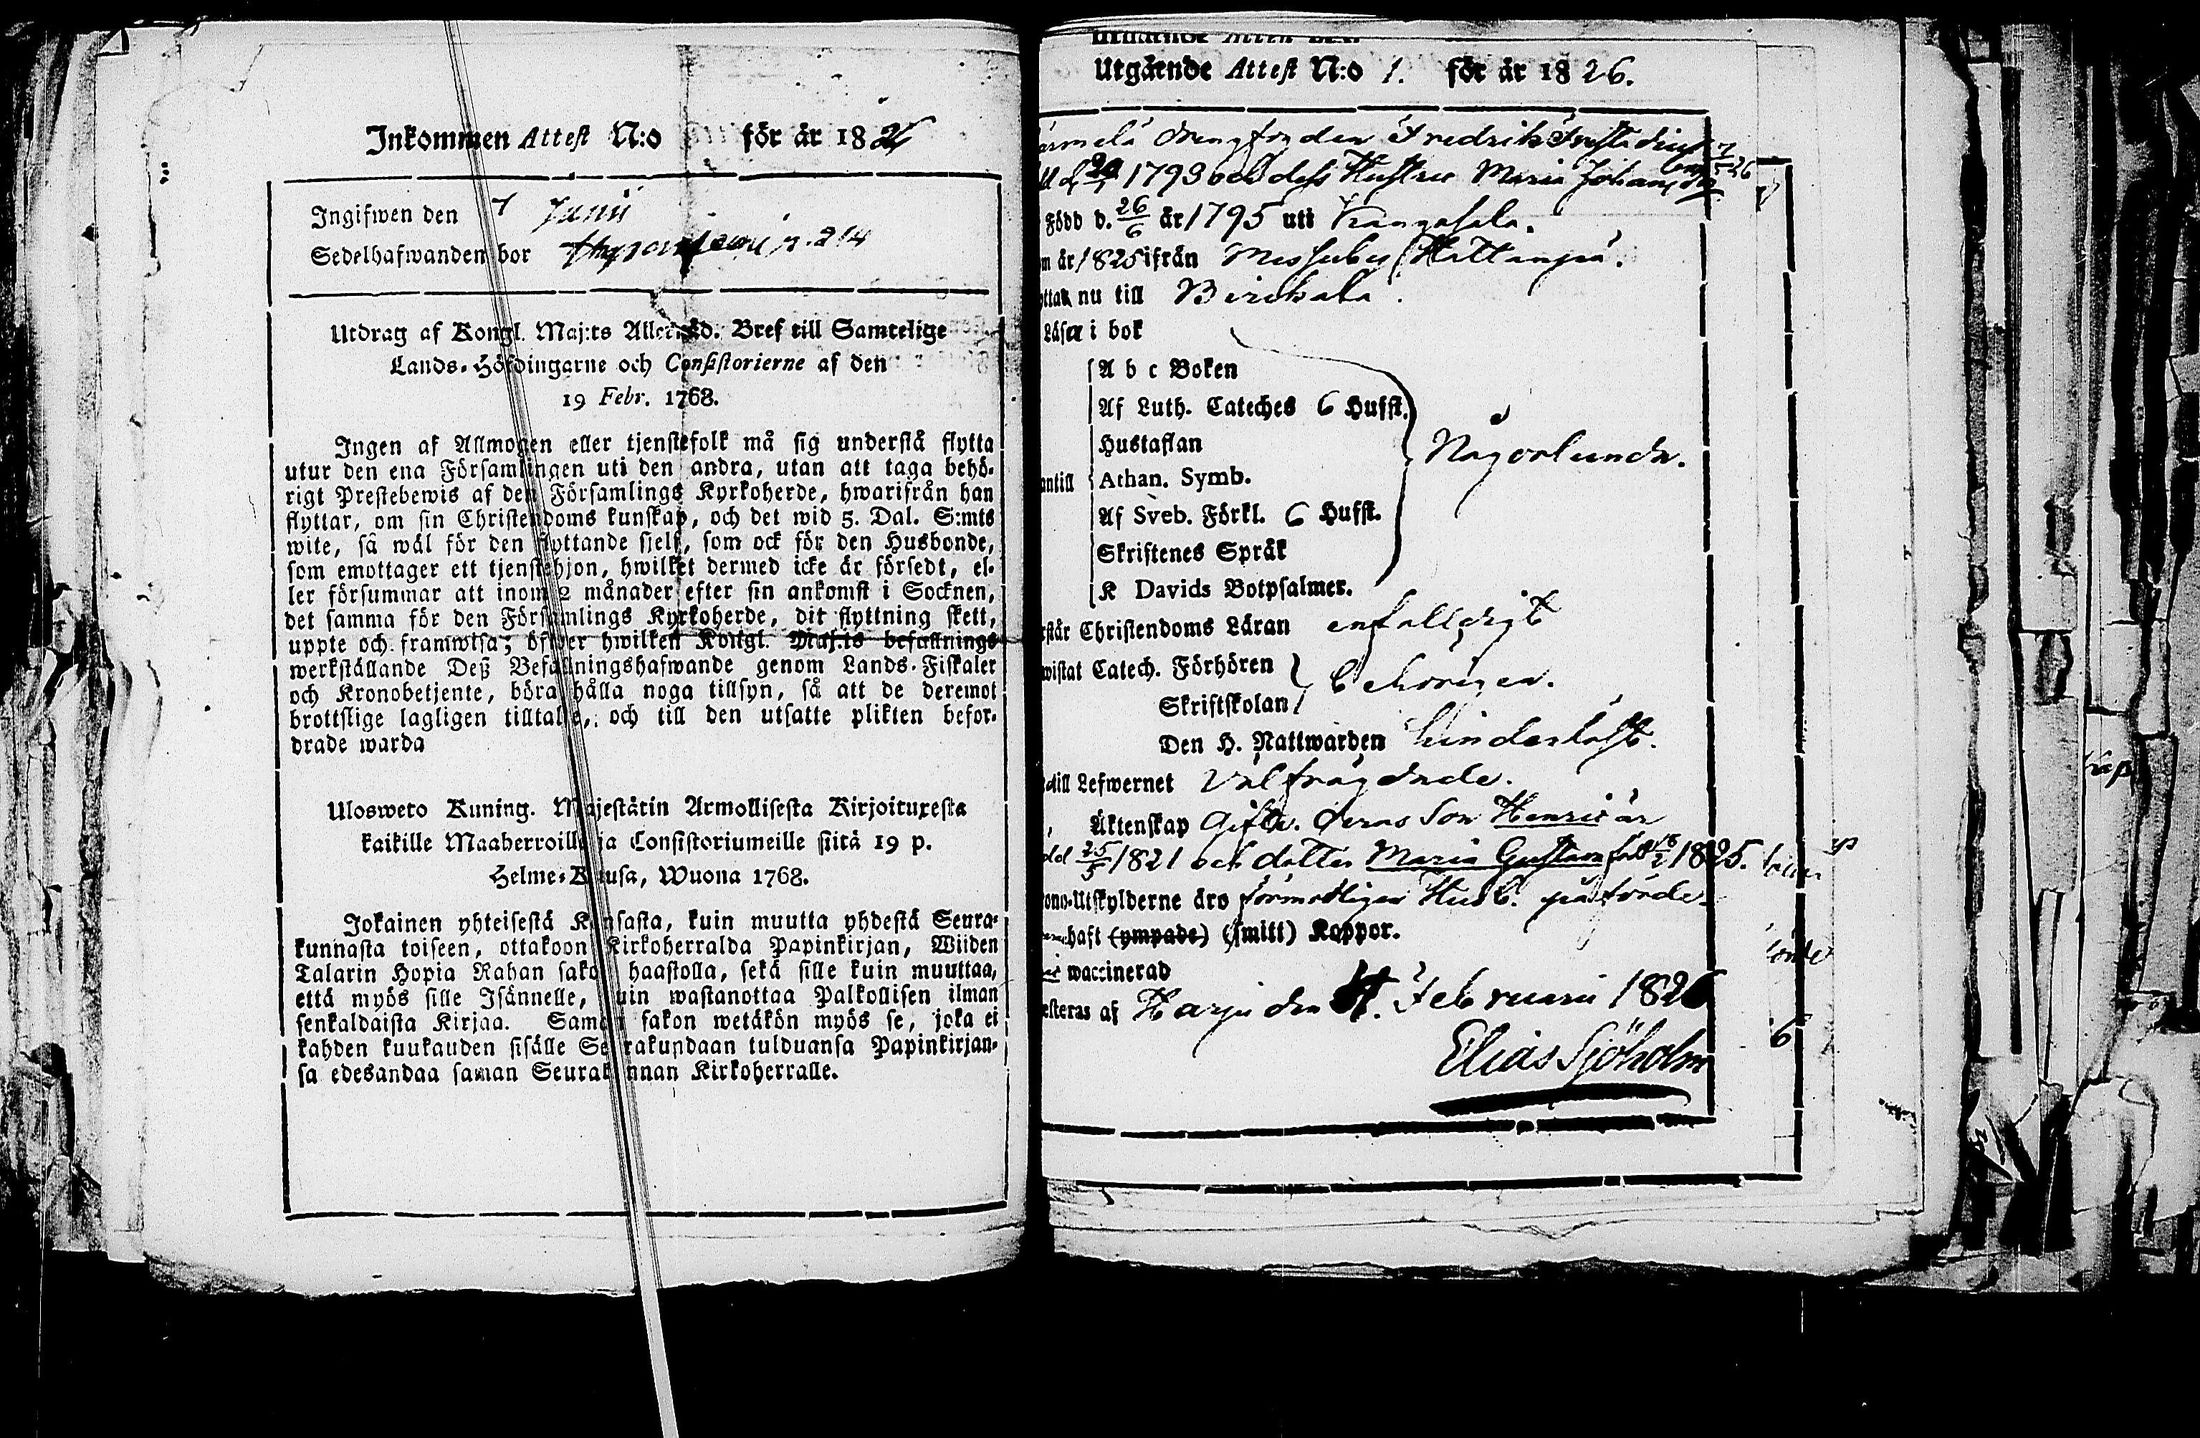 Inkommen Attest N:o för år 18 26
Ingifwen den 7 Junii
Sedelhafwanden bor p. 214
Utdrag af Kongl. Maj:ts Allernåd. Bref till Samtelige
Lands-Höfdingarne och Consistorierne af den
19 Febr. 1768.
Ingen af Allmogen eller tjenstefolk må sig understå flytta
utur den ena Församlingen uti den andra, utan att taga behö-
rigt Prestebewis af den Församlings Kyrkoherde, hwarifrån han
flyttar, om sin Christendoms kunskap, och det wid 5. Dal. S:mts
wite, så wäl för den flyttande sjelf, som ock för den Husbonde,
som emottager ett tjenstehjon, hwilket dermed icke är försedt, el-
ler försummar att inom 2 månader efter sin ankomst i Socknen,
det samma för den Församlings Kyrkoherde, dit flyttning skett,
uppte och framwisa; öfwer hwilken Kongl. Maj:ts befallnings
werkställande Deß Befallningshafwande genom Lands-Fiskaler
och Kronobetjente, böra hålla noga tillsyn, så att de deremot
brottslige lagligen tilltalas, och till den utsatte plikten befor-
drade warda
Ulosweto Kuning. Majestätin Armollisesta Kirjoituxesta
kaikille Maaherroille ja Consistoriumeille siitä 19 p.
Helme-Kuusa, Wuona 1768.
Jokainen yhteisestä Kansasta, kuin muutta yhdestä Seura-
kunnasta toiseen, ottakoon Kirkoherralda Papinkirjan, Wiiden
Talarin Hopia Rahan sakon haastolla, sekä sille kuin muuttaa,
että myös sille Isännelle, kuin wastanottaa Palkollisen ilman
senkaldaista Kirjaa. Saman sakon wetäkön myös se, joka ei
kahden kuukauden sisälle Seurakundaan tulduansa Papinkirjan-
sa edesandaa saman Seurakunnan Kirkoherralle.
Utgående Attest N:o 1. för år 18 26.
Fredrik
1793 och dess Hustru Maria Johans dr
Född d. 26/6 år 1795 uti Kangasala.
år 1825 ifrån Messuby Hattanpä.
nu till Birckala.
Läser i bok
A b c Boken
Af Luth. Cateches 6 Hufst.
Hustaflan
antill Athan. Symb.
Någorlunda.
Af Sveb. Förkl. 6 Hufst.
Skriftenes Språk
K Davids Botpsalmer.
Christendoms Läran enfalldigt
wistat Catech. Förhören
behörigen.
Skriftskolan
Den H. Nattwarden
till Lefwernet Välfrägdade.
Äktenskap Gifta. deras Son Henric är
25/5 1821 och dotter Maria Gustava född 18/2 1825.
ono-Utskylderne äro
haft (ympade) (smitt) Koppor.
waccinerad
esteras af Harju den Februarii 1826
Elias Sjöholm